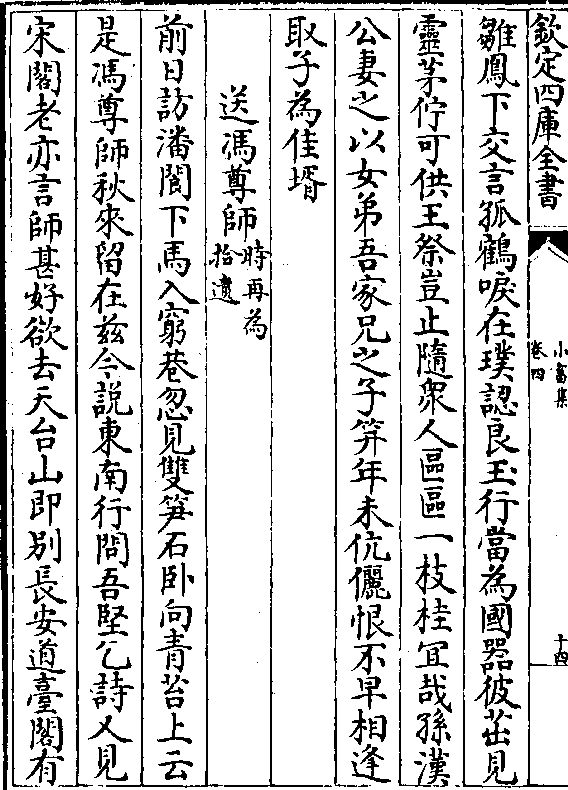 欽定四庫全書
小畜集
卷四
十四
雛鳳下交言孤鶴唳在璞認良玉行當為國器彼茁見
靈茅佇可供王祭豈止隨衆人區區一枝桂宜哉孫漢
公妻之以女弟吾家兄之子筭年未伉儷恨不早相逢
取子為佳壻
送馮尊師時再為拾遺
前日訪潘閬下馬入窮巷忽見雙筍石卧向青苔上云
是馮尊師秋來留在兹今說東南行問吾堅乞詩又見
宋閣老亦言師甚好欲去天台山即别長安道臺閣有